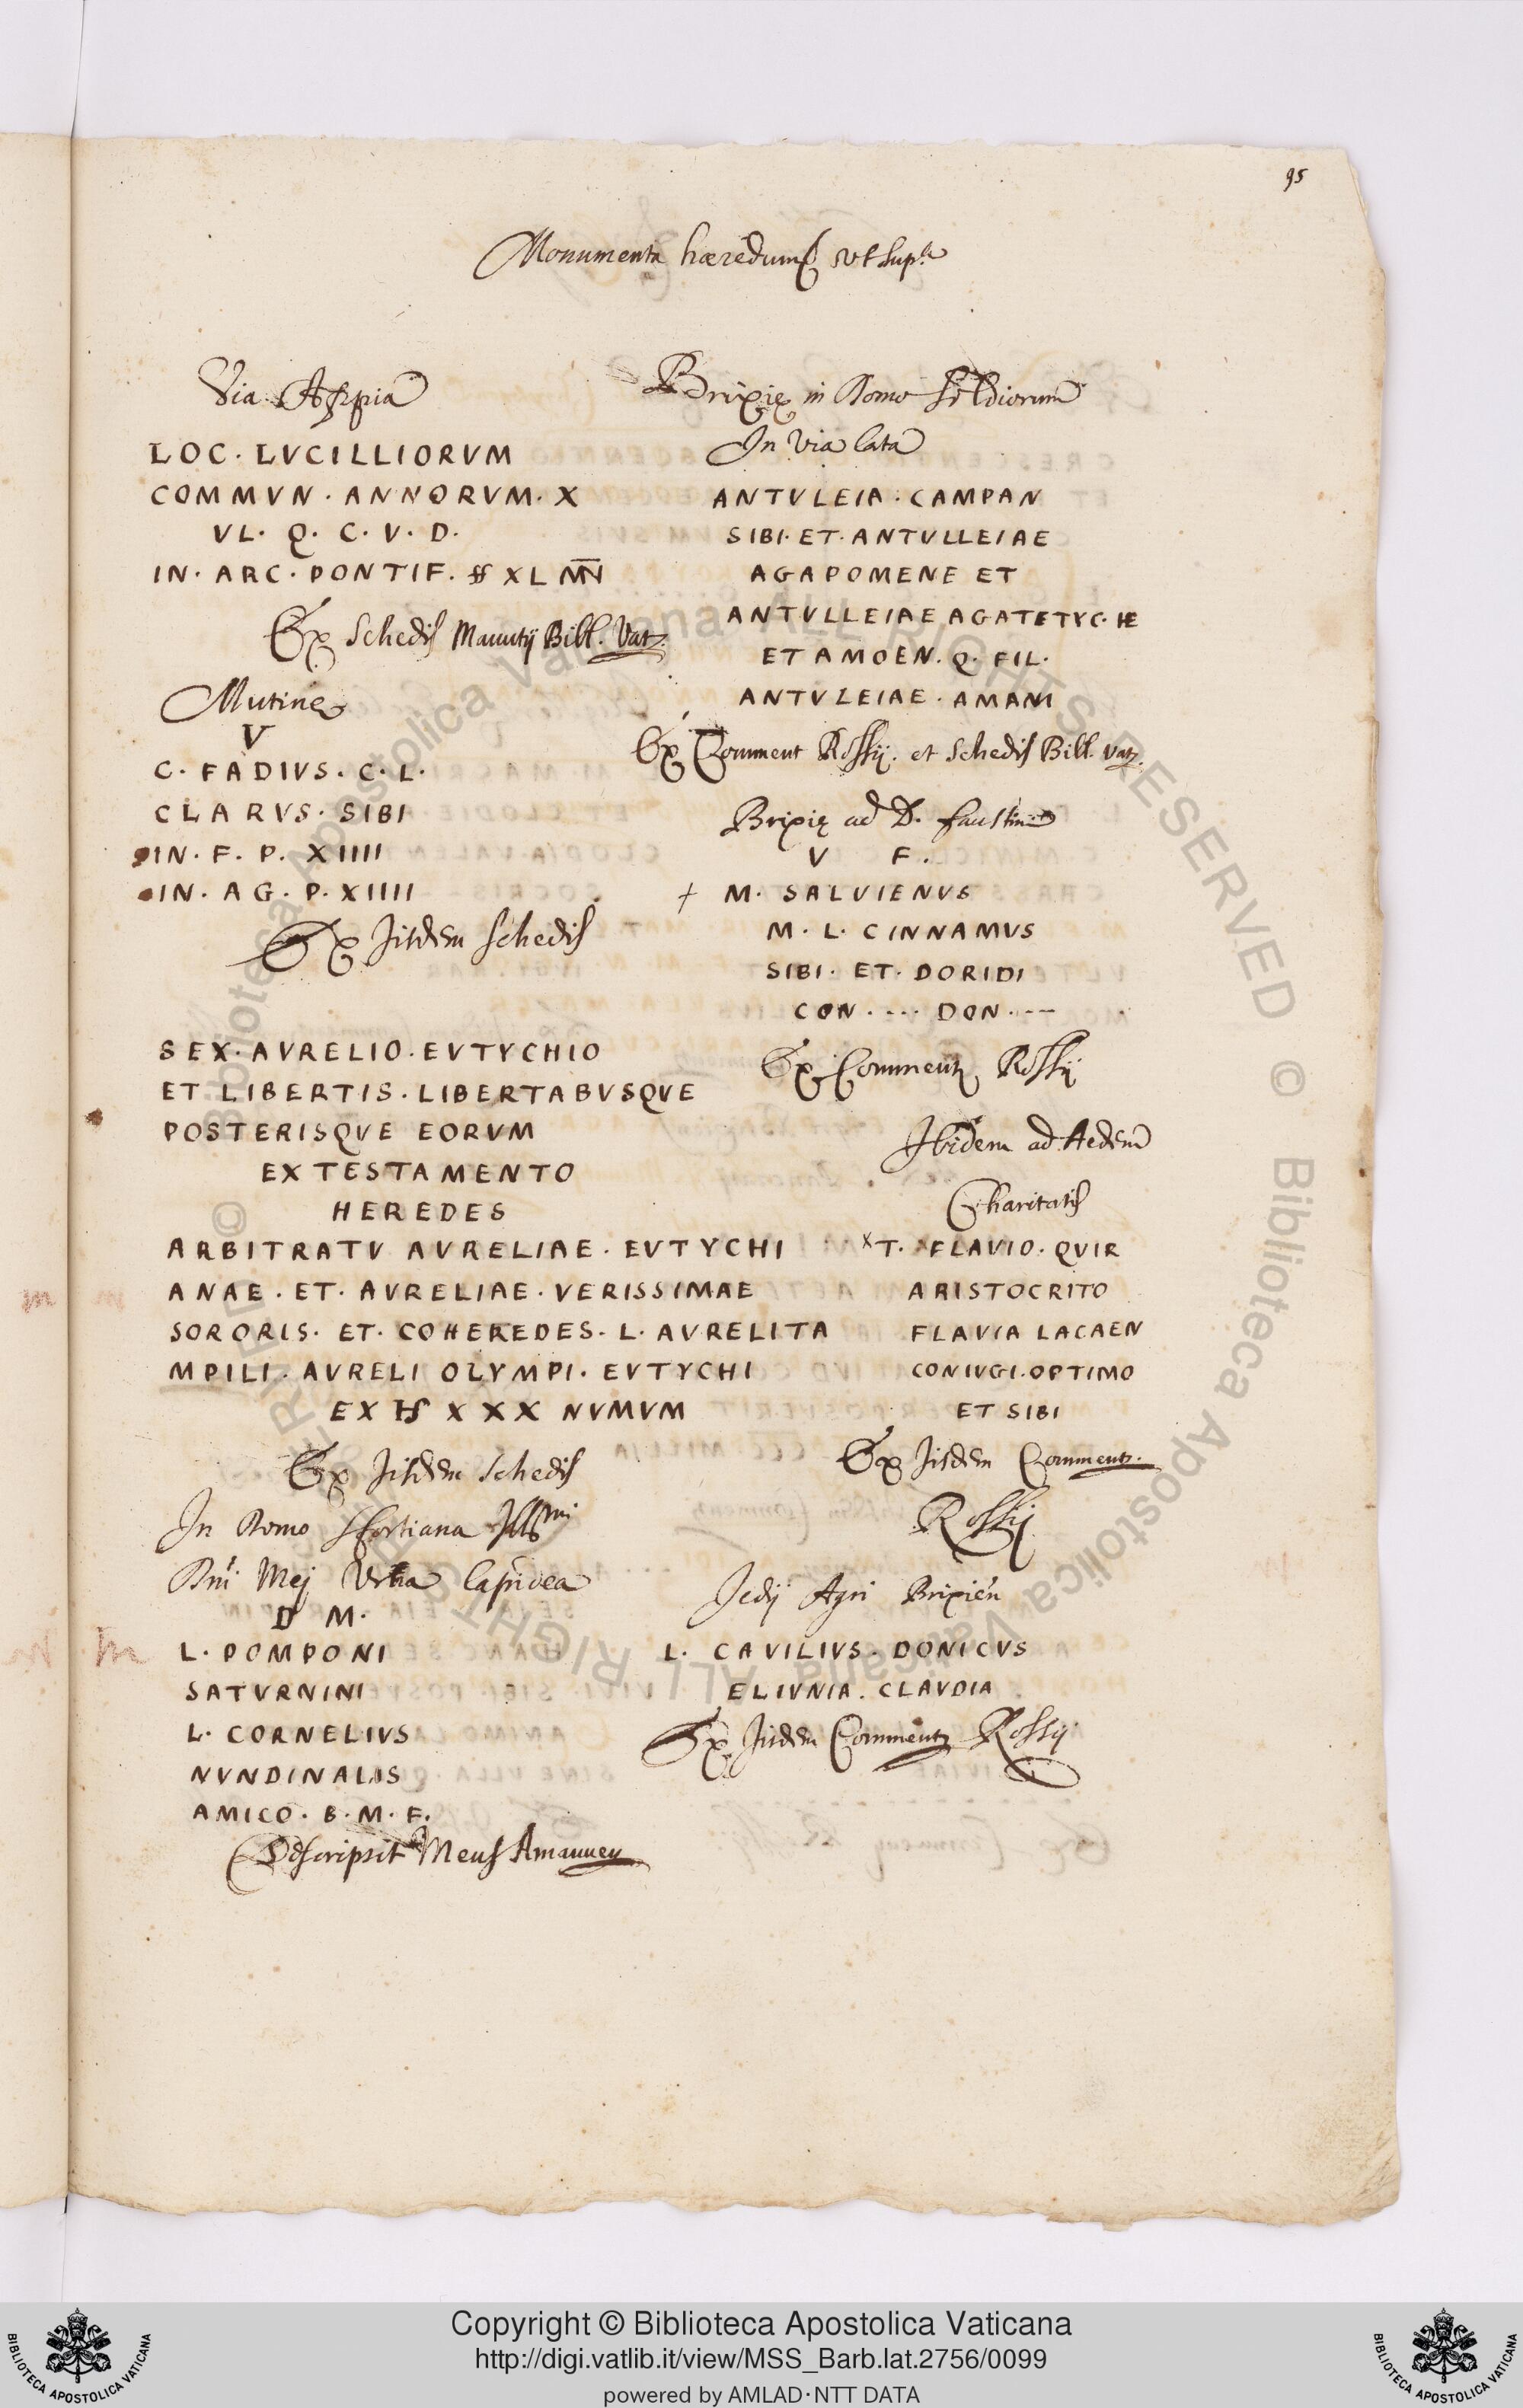 95
Monumenta hæredum ut sup.ª
Via Appia
LOC. LVCILLIORVM
COMMVN. ANNORVM. X
VL. Q. C. V. D.
IN. ARC. PONTIF. XL
Ex Schedis Manutij Bibl. Vat.
Mutinę
V
C. FADIVS. C. L.
CLARVS. SIBI
IN. F. P. XIIII
IN. AG. P. XIIII
Ex Jisdem Schedis
SEX. AVRELIO. EVTYCHIO
ET LIBERTIS. LIBERTABVSQVE
POSTERISQVE EORVM
EX TESTAMENTO
HEREDES
ARBITRATV AVRELIAE. EVTYCHI
ANAE. ET. AVRELIAE. VERISSIMAE
SORORIS. ET. COHEREDES. L. AVRELITA
MPILI. AVRELI OLYMPI. EVTYCHI
EX HS XXX NVMVM
Ex Jisdem Schedis
In Domo Sfortiana Illmi
Dni Mej Urna lapidea
D M.
L. POMPONI
SATVRNINI
L. CORNELIVS
NVNDINALIS
AMICO. B. M. F.
Descripsit Meus Amanuen
Brixię in Domo
In via lata
ANTVLEIA. CAMPAN
SIBI. ET. ANTVLLEIAE
AGAPOMENE ET
ANTVLLEIAE AGATETYC. HE
ET AMOEN. Q. FIL.
ANTVLEIAE. AMANI
Ex Comment Rossij. et Schedis Bibl. Vat.
Brixię ad D. Faustin
V F.
+ M. SALVIENVS
M. L. CINNAMVS
SIBI. ET. DORIDI
CON. ... DON. --
Ex Comment Rossij
Ibidem ad Aedem
Charitatis
x T. FLAVIO. QVIR
ARISTOCRITO
FLAVIA LACAEN
CONIVGI. OPTIMO
ET SIBI
Ex Jisdem Comment.
Rossij
Jedij Agri Brixien
L. CAVILIVS. DONICVS
ELIVNIA. CLAVDIA
Ex Jisdem Comment Rossij
m
m
© Biblioteca Apostolica Vaticana ALL RIGHTS RESERVED © Biblioteca Apostolica Vaticana ALL RIGHTS RESERVED
Copyright © Biblioteca Apostolica Vaticana
http://digi.vatlib.it/view/MSS_Barb.lat.2756/0099
powered by AMLAD·NTT DATA
BIBLIOTECA APOSTOLICA VATICANA
BIBLIOTECA APOSTOLICA VATICANA